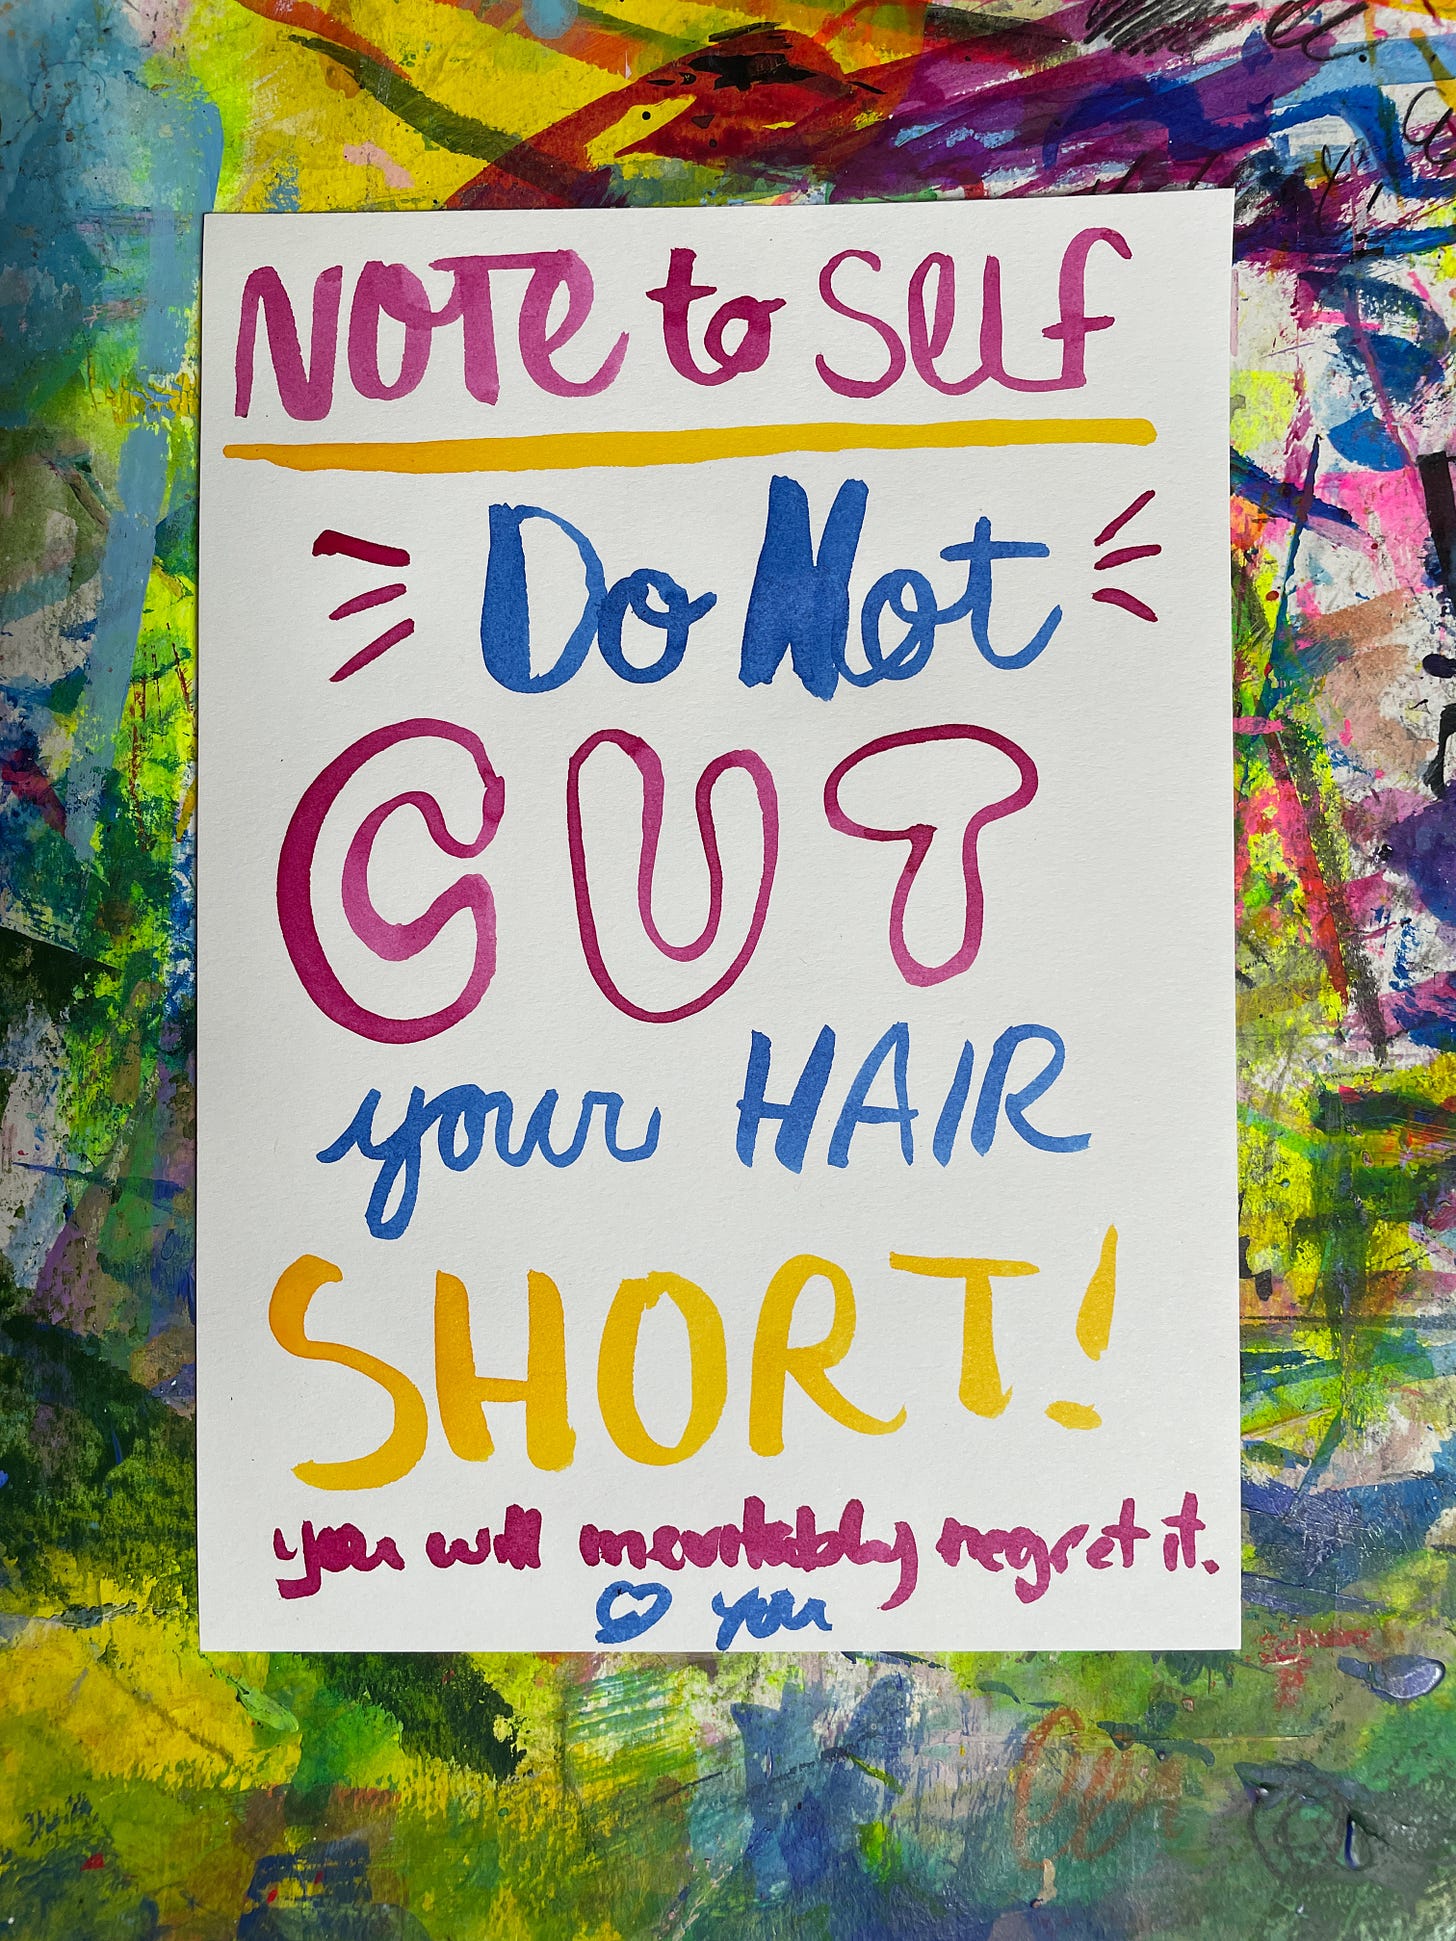 NOTE to Self
Do Not
CUT
your HAIR
SHORT!
you will inevitably regret it.
♡ you